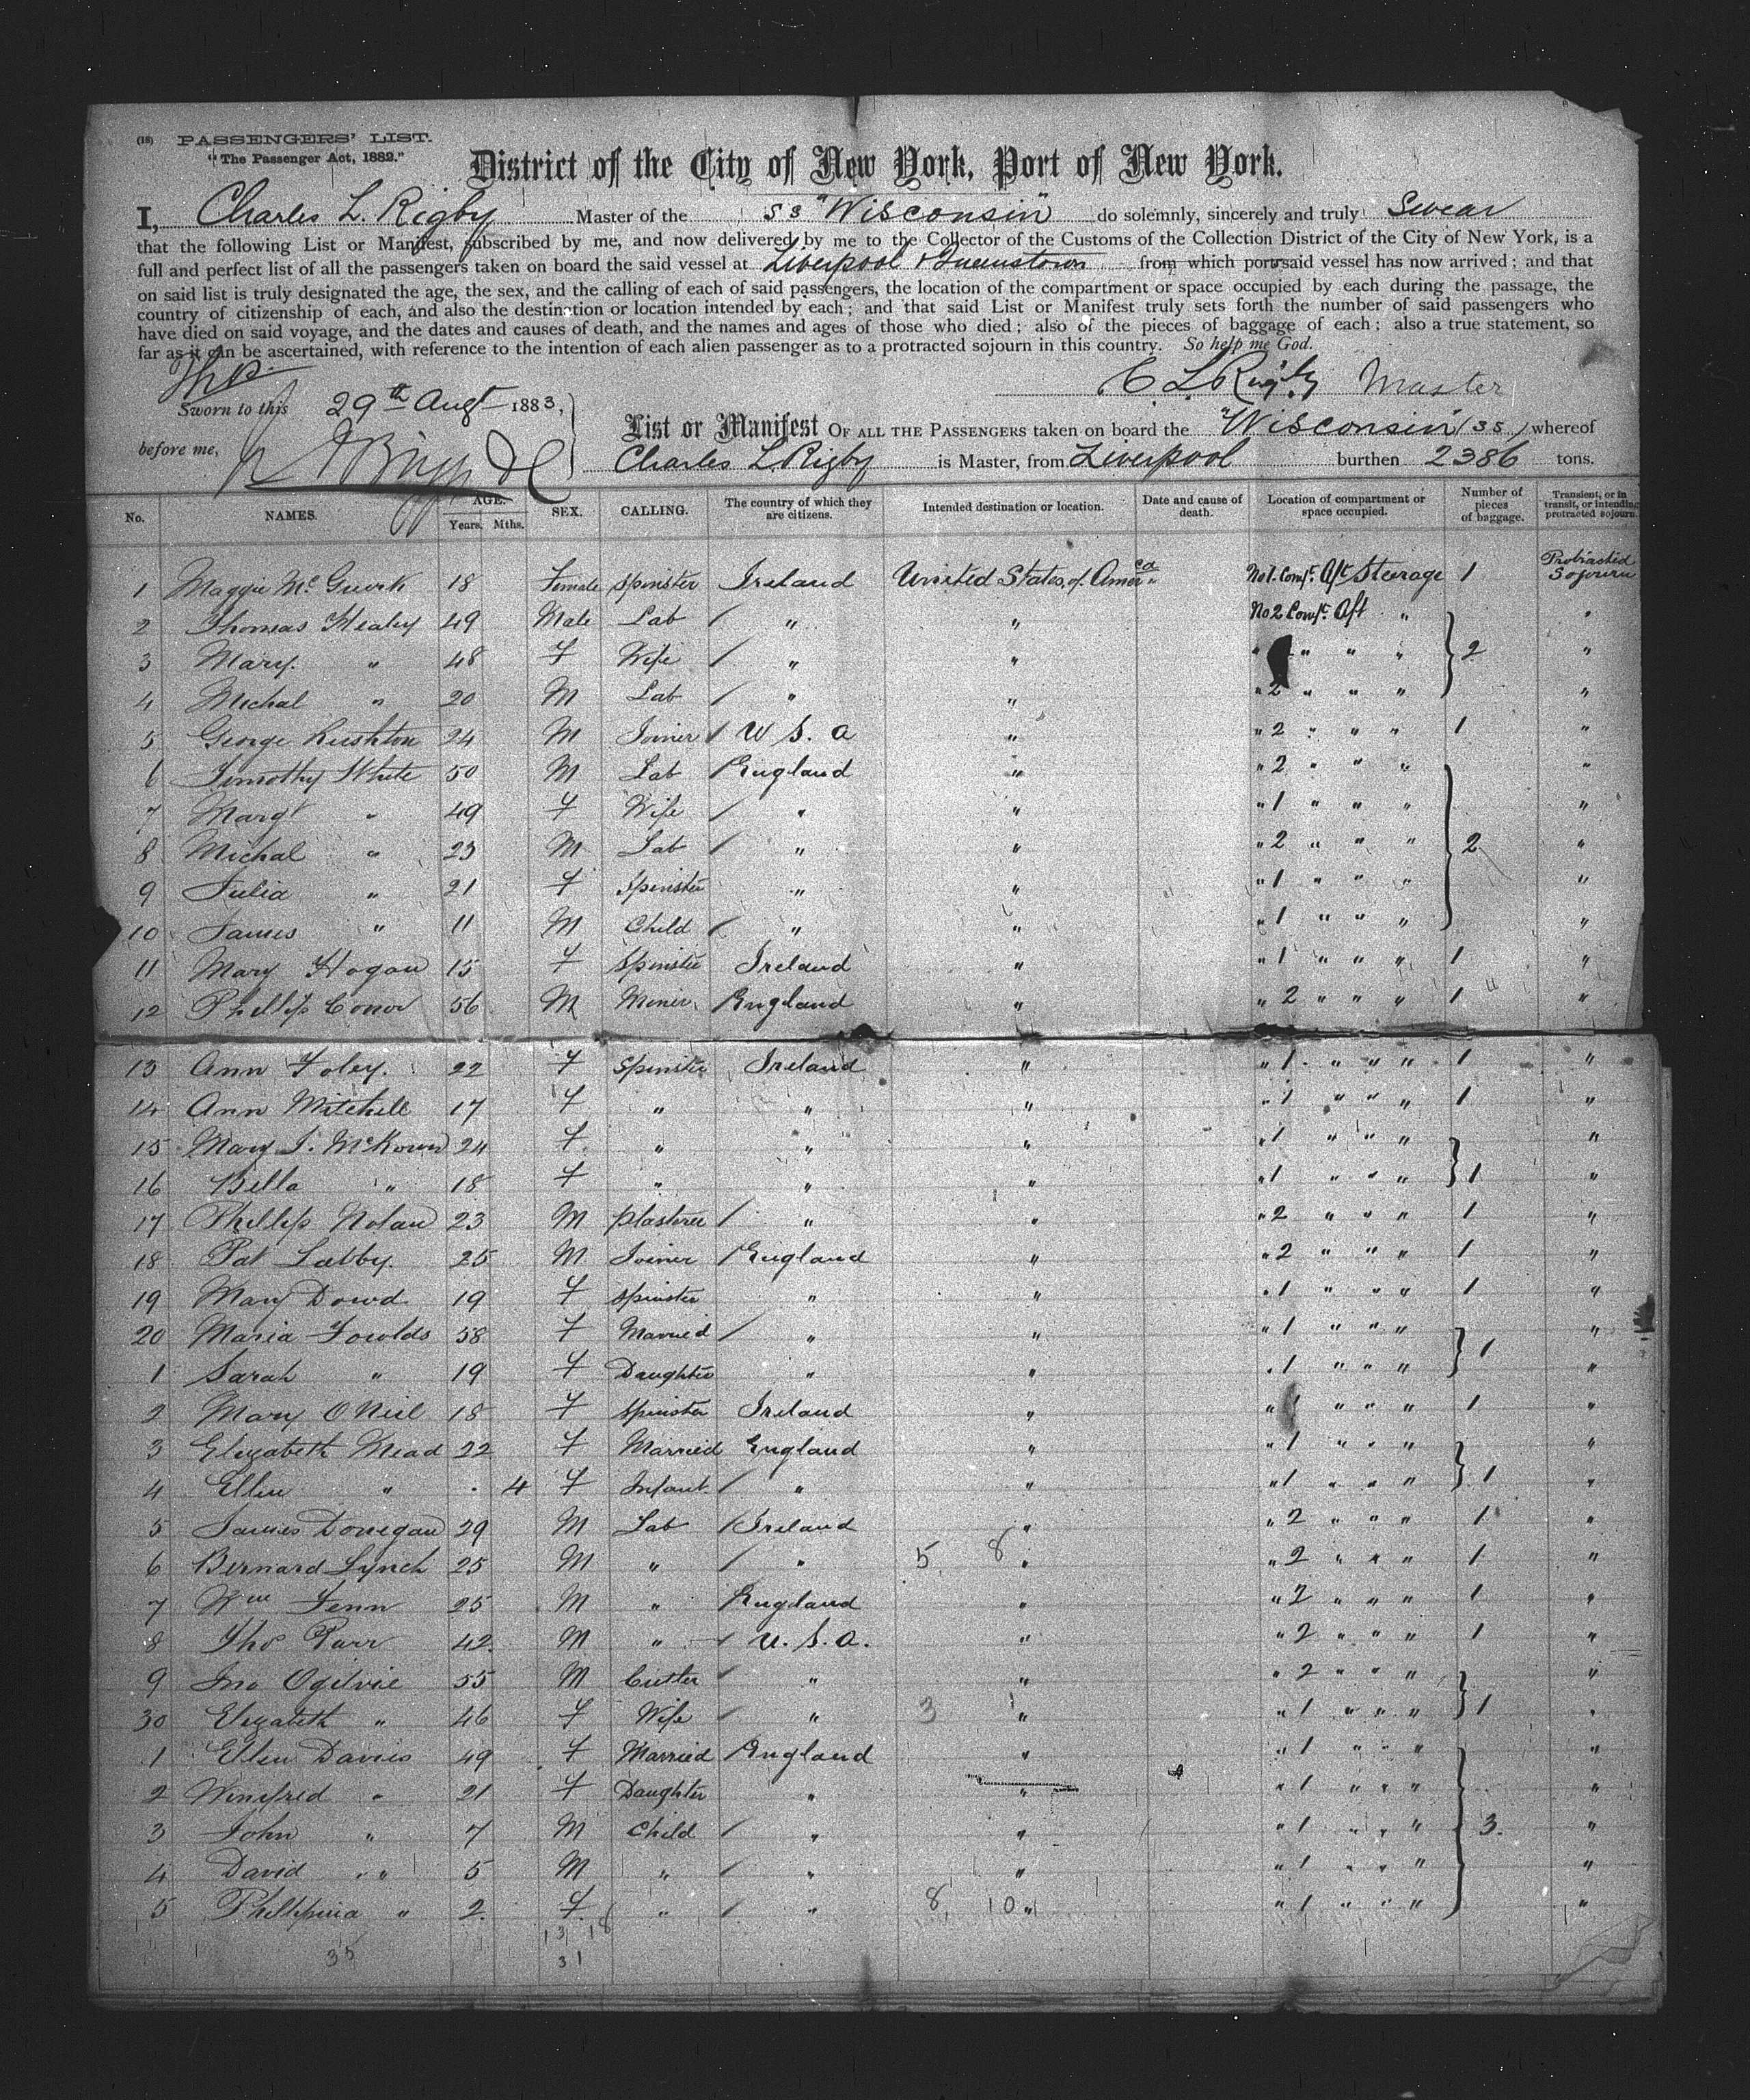 (18) PASSENGERS' LIST.
"The Passenger Act, 1882."
District of the City of New York, Port of New York.
I, Charles L. Rigby Master of the SS "Wisconsin" do solemnly, sincerely and truly Swear
that the following List or Manifest, subscribed by me, and now delivered by me to the Collector of the Customs of the Collection District of the City of New York, is a
full and perfect list of all the passengers taken on board the said vessel at Liverpool & Queenstown from which port said vessel has now arrived; and that
on said list is truly designated the age, the sex, and the calling of each of said passengers, the location of the compartment or space occupied by each during the passage, the
country of citizenship of each, and also the destination or location intended by each; and that said List or Manifest truly sets forth the number of said passengers who
have died on said voyage, and the dates and causes of death, and the names and ages of those who died; also of the pieces of baggage of each; also a true statement, so
far as it can be ascertained, with reference to the intention of each alien passenger as to a protracted sojourn in this country. So help me God.
C. L. Rigby Master
Sworn to this 29th Augt 1883,
before me,
List or Manifest OF ALL THE PASSENGERS taken on board the "Wisconsin" (SS) whereof
Charles L Rigby is Master, from Liverpool burthen 2386 tons.
No. NAMES. AGE. Years. Mths. SEX. CALLING. The country of which they are citizens. Intended destination or location. Date and cause of death. Location of compartment or space occupied. Number of pieces of baggage. Transient, or in transit, or intending protracted sojourn.
1 Maggie McGuirk 18 Female Spinster Ireland United States of America No 1. Compt. Aft Steerage 1 Protracted Sojourn
2 Thomas Healey 49 Male Lab / " " No 2 Compt. Aft " "
3 Mary. " 48 F Wife / " " " " " " 2 "
4 Michal " 20 M Lab / " " " 2 " " " "
5 George Rushton 24 M Joiner / U S. A " " 2 " " " 1 "
6 Timothy White 50 M Lab / England " " 2 " " " "
7 Margt " 49 F Wife / " " " 1 " " " "
8 Michal " 23 M Lab / " " " 2 " " " 2 "
9 Julia " 21 F Spinster " " " 1 " " " "
10 James " 11 M Child / " " " 1 " " " "
11 Mary Hogan 15 F Spinster Ireland " " 1 " " " 1 "
12 Phillip Conor 56 M Miner England " " 2 " " " 1 "
13 Ann Foley. 22 F Spinster Ireland " " 1 " " " 1 "
14 Ann Mitchell 17 F " " " " 1 " " " 1 "
15 Mary J. McKown 24 F " " " " 1 " " " "
16 Bella " 18 F " " " " 1 " " " 1 "
17 Phillip Nolan 23 M Plasterer / " " " 2 " " " 1 "
18 Pat Labby. 25 M Joiner / England " " 2 " " " 1 "
19 Mary Dowd 19 F Spinster " " " 1 " " " 1 "
20 Maria Fowlds 58 F Married / " " " 1 " " " "
1 Sarah " 19 F Daughter " " " 1 " " " 1 "
2 Mary O Neil 18 F Spinster Ireland " " 1 " " " 1 "
3 Elizabeth Mead 22 F Married England " " 1 " " " "
4 Ellen " . 4 F Infant / " " " 1 " " " 1 "
5 James Donegan 29 M Lab / Ireland " " 2 " " " 1 "
6 Bernard Lynch 25 M " / " 5 8 " " 2 " " " 1 "
7 Wm Fenn 25 M " England " " 2 " " " 1 "
8 Tho Parr 42 M " / U. S. A. " " 2 " " " 1 "
9 Jno Ogilvie 55 M Cutler / " " " 2 " " " "
30 Elizabeth " 46 F Wife / " 3 " " 1 " " " 1 "
1 Ellen Davies 49 F Married / England " " 1 " " " "
2 Winifred " 21 F Daughter " " " 1 " " " "
3 John " 7 M Child / " " " 1 " " " 3. "
4 David " 5 M " / " " " 1 " " " "
5 Phillipina " 2. F " / " 8 10 " " 1 " " " "
13 18
35 31